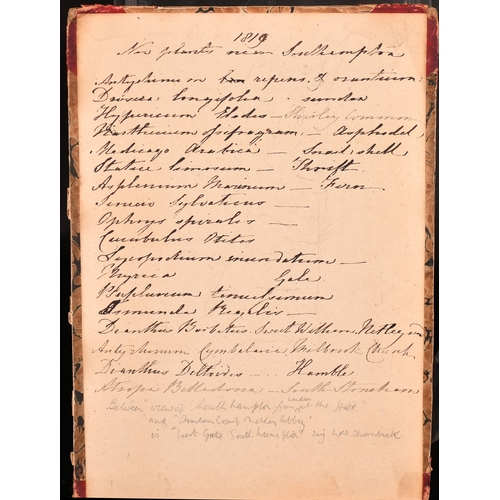 1819
New plants near Southampton
Antyrhinum on repens, & orontium.
Drosera longifolia . sundew
Hypericum Elodes - Shirley Common
Narthecium ossifragum - Asphodel
Medicago Arabica - Snail shell
Statice Limonium - Thrift
Asplenium Marinum - Fern
Senecio Sylvaticus -
Ophrys spiralis -
Cucubalus Otites
Lycopodium inundatum -
Myrica Gale
Buplurum tenuissimum
Osmunda Regalis -
Dianthus Barbatus Sweet William Netley
Antyrhinum Cymbalaria Milbrook Church
Dianthus Deltoides - .. Hamble
Atropa Belladona - South Stoneham
Between "view of Southampton from the
and "Fountain Court Netley Abbey"
is "West Gate Southampton"